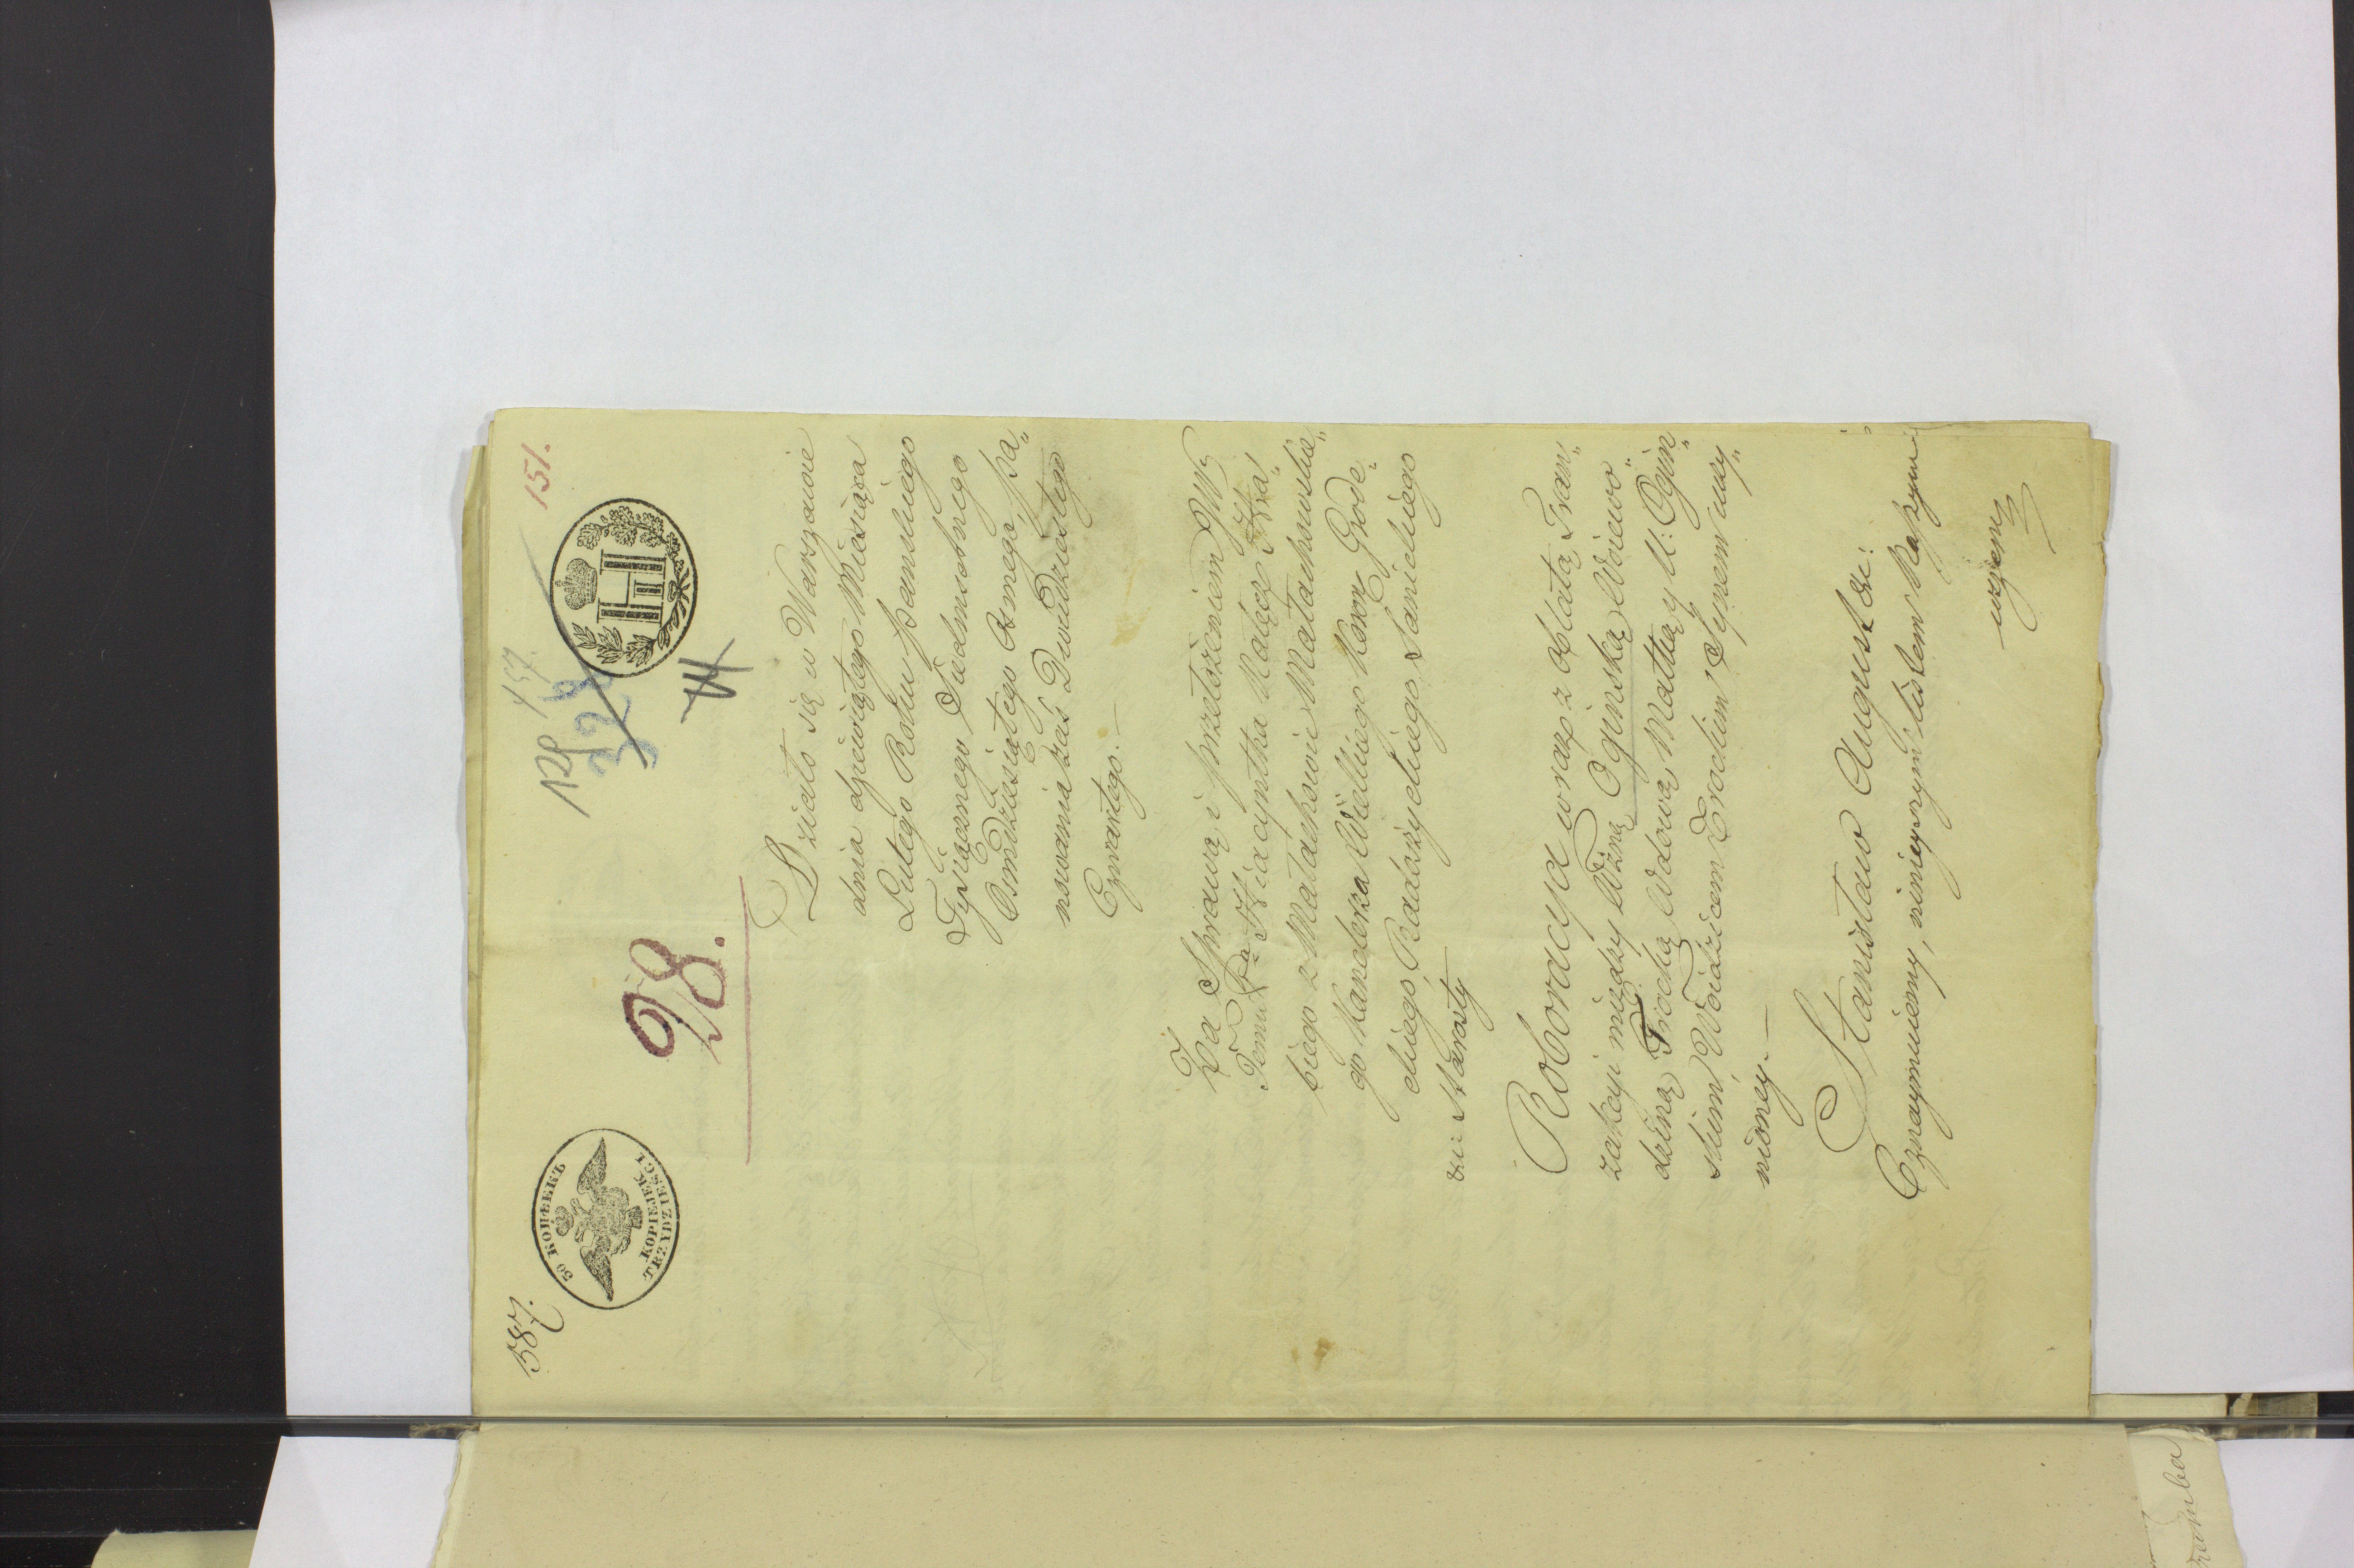 587.
30 КОПѢЕКЪ
KOPIEJEK
TRZYDZIEŚCI
H II
157.
151.
98.
Działo się w Warszawie
dnia dziewiątego Miesiąca
Lutego Roku pańskiego
Tysiącznego Siedmsetnego
Ośmdziesiątego Osmego, pa„
nowania zaś Dwudziestego
Czwartego.—
Za Sprawą i przełożeniem JW
Hiacyntha Nałęcz Hra„
biego z Małachowic Małachowskie„
go Kanclerza Wielkiego Koron Grode„
ckiego, Radoszyckiego, Sanickiego
&ci Starosty
Roboracya wraz z oblatą Tran„
zakcyi między Wżną Oginską Woiewo„
dziną Trocką Wdową Matką y U: Ogin„
skim, Woidzicem Trockim Synem uczy„
nioney.—
Stanisław August &c:
Oznaymuiemy, ninieyszym listem Naszym
wszem